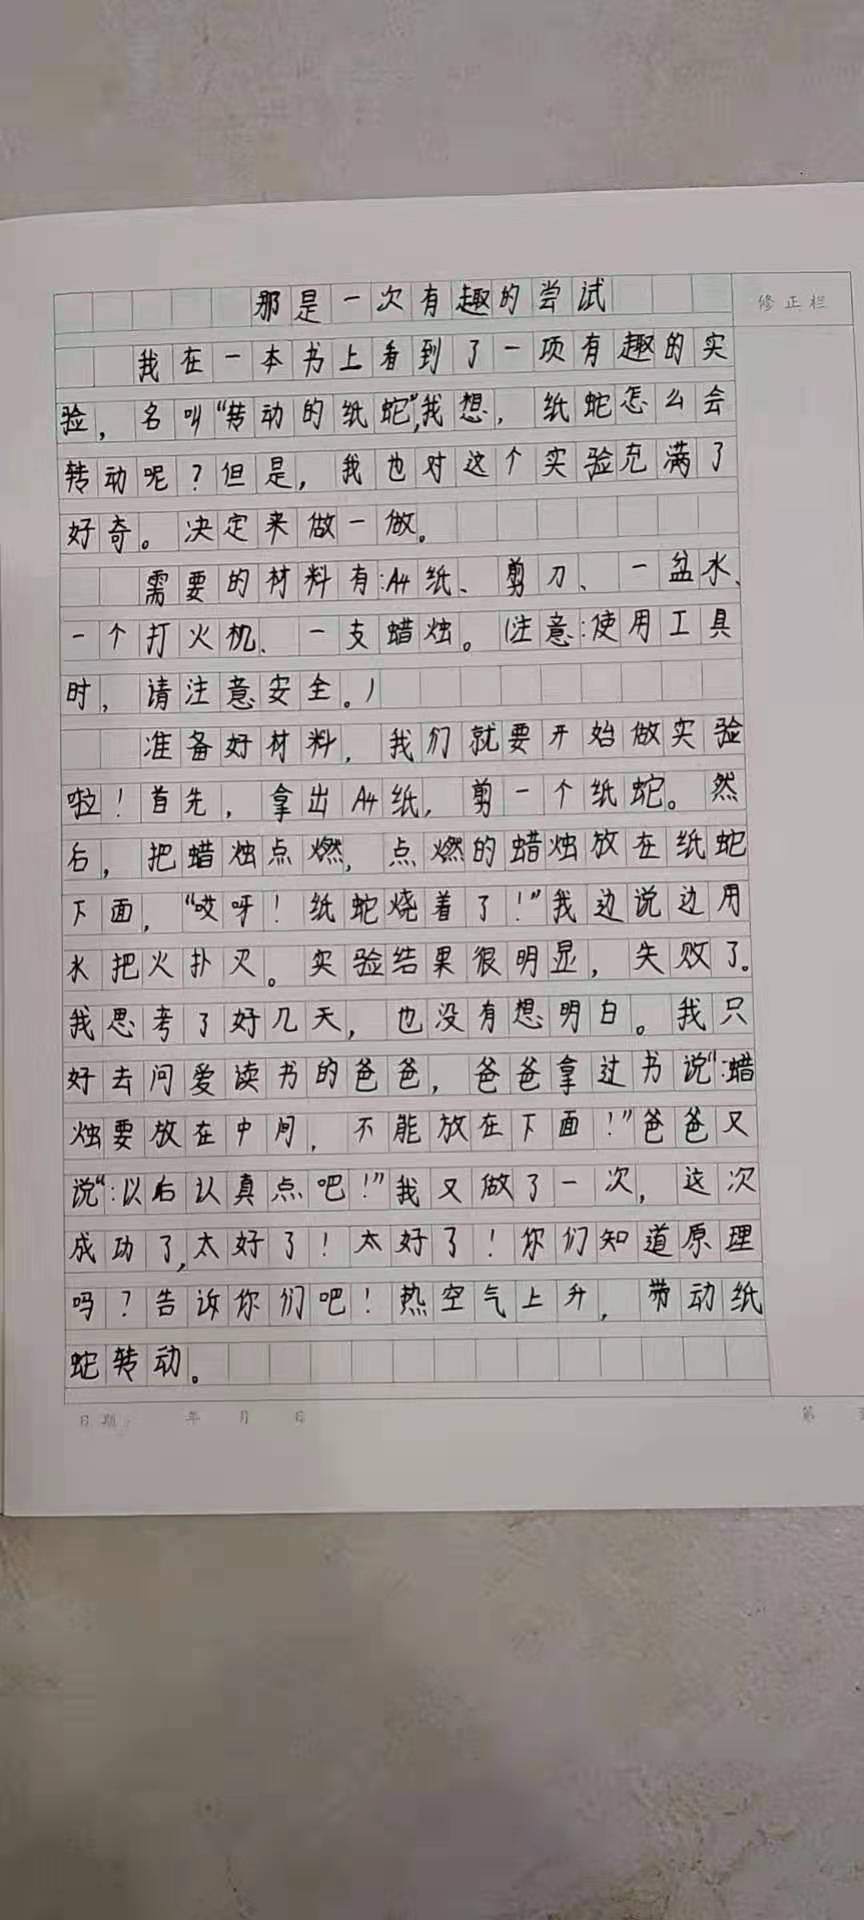 修正栏
那是一次有趣的尝试
我在一本书上看到了一项有趣的实
验，名叫“转动的纸蛇”，我想，纸蛇怎么会
转动呢？但是，我也对这个实验充满了
好奇。决定来做一做。
需要的材料有：A4纸、剪刀、一盆水、
一个打火机、一支蜡烛。（注意：使用工具
时，请注意安全。）
准备好材料，我们就要开始做实验
啦！首先，拿出A4纸，剪一个纸蛇。然
后，把蜡烛点燃，点燃的蜡烛放在纸蛇
下面，“哎呀！纸蛇烧着了！”我边说边用
水把火扑灭。实验结果很明显，失败了。
我思考了好几天，也没有想明白。我只
好去问爱读书的爸爸，爸爸拿过书说“：蜡
烛要放在中间，不能放在下面！”爸爸又
说“：以后认真点吧！”我又做了一次，这次
成功了，太好了！太好了！你们知道原理
吗？告诉你们吧！热空气上升，带动纸
蛇转动。
日期： 年 月 日
第